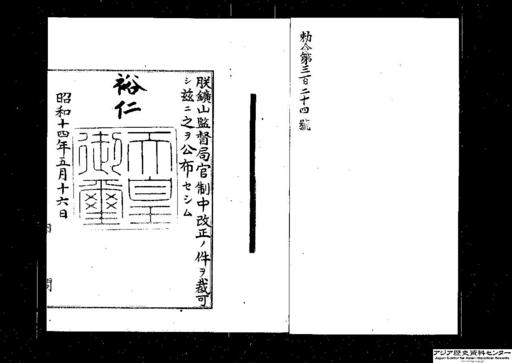 勅令第三百二十四號
朕鑛山監督局官制中改正ノ件ヲ裁可
シ茲ニ之ヲ公布セシム
裕仁
天皇御璽
昭和十四年五月十六日
アジア歴史資料センター
Japan Center for Asian Historical Records